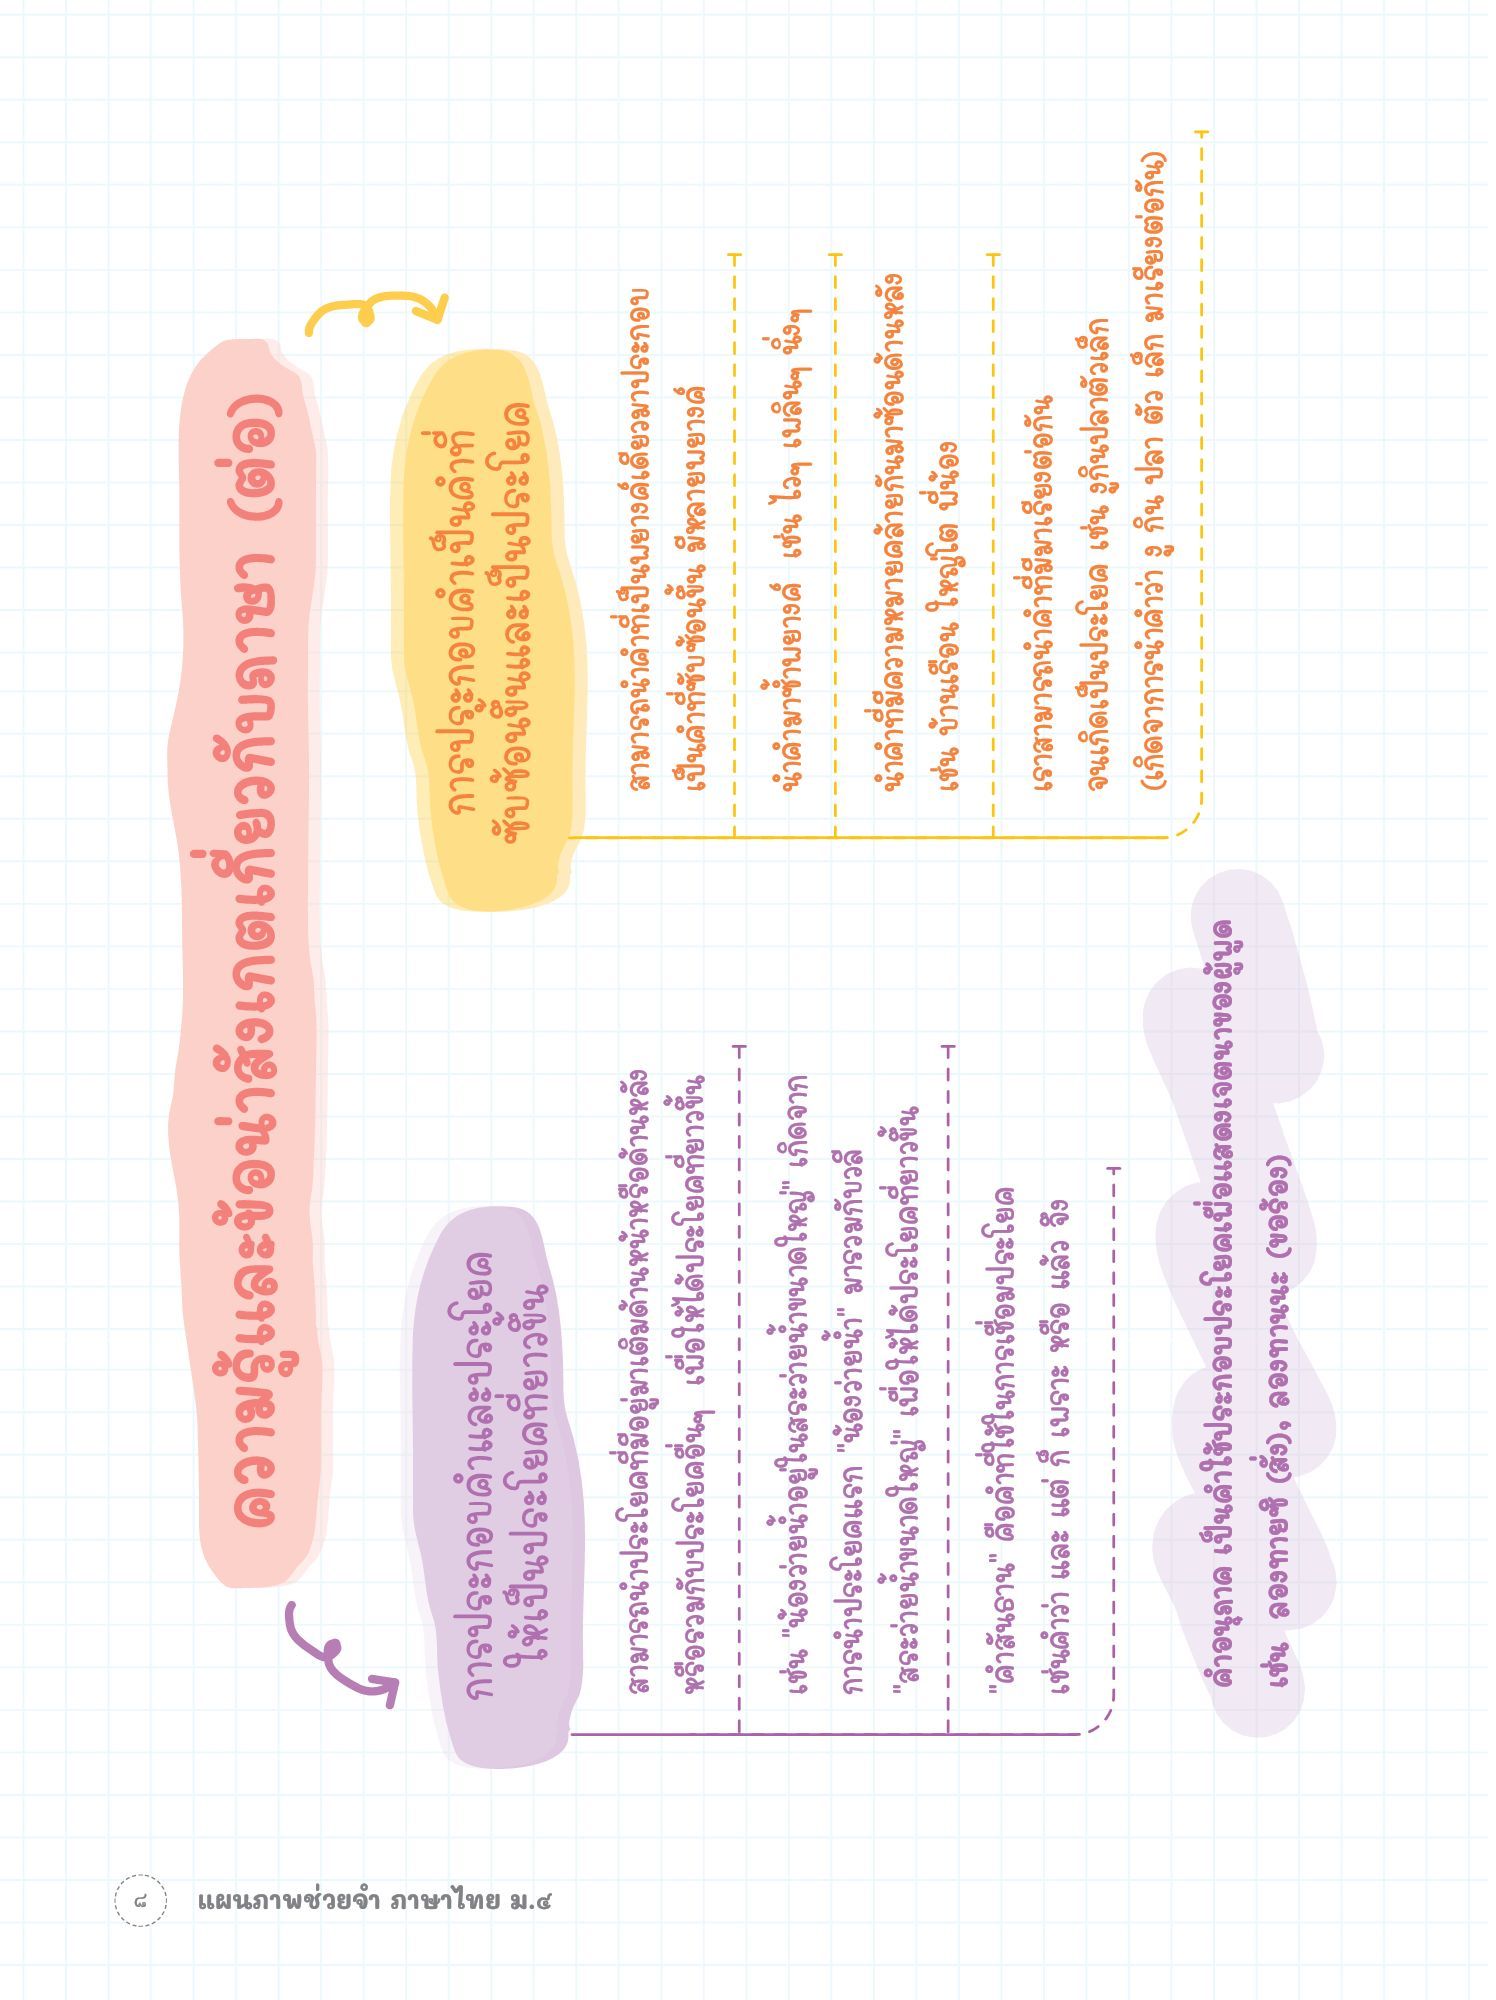 ความรู้และข้อน่าสังเกตเกี่ยวกับภาษา (ต่อ)
การประกอบคำและประโยค
ให้เป็นประโยคที่ยาวขึ้น
สามารถนำประโยคที่มีอยู่มาเติมด้านหน้าหรือด้านหลัง
หรือรวมกับประโยคอื่นๆ เพื่อให้ได้ประโยคที่ยาวขึ้น
เช่น "น้องว่ายน้ำอยู่ในสระว่ายน้ำขนาดใหญ่" เกิดจาก
การนำประโยคแรก "น้องว่ายน้ำ" มารวมกับวลี
"สระว่ายน้ำขนาดใหญ่" เพื่อให้ได้ประโยคที่ยาวขึ้น
"คำสันธาน" คือคำที่ใช้ในการเชื่อมประโยค
เช่นคำว่า และ แต่ ก็ เพราะ หรือ แล้ว จึง
คำอนุภาค เป็นคำใช้ประกอบประโยคเพื่อแสดงเจตนาของผู้พูด
เช่น ลองทายซิ (สั่ง), ลองทานนะ (ขอร้อง)
การประกอบคำเป็นคำที่
ซับซ้อนขึ้นและเป็นประโยค
สามารถนำคำที่เป็นพยางค์เดียวมาประกอบ
เป็นคำที่ซับซ้อนขึ้น มีหลายพยางค์
นำคำมาซ้ำพยางค์ เช่น ไวๆ เพลินๆ นิ่งๆ
นำคำที่มีความหมายคล้ายกันมาซ้อนด้านหลัง
เช่น บ้านเรือน ใหญ่โต พี่น้อง
เราสามารถนำคำที่มีมาเรียงต่อกัน
จนเกิดเป็นประโยค เช่น งูกินปลาตัวเล็ก
(เกิดจากการนำคำว่า งู กิน ปลา ตัว เล็ก มาเรียงต่อกัน)
๘ แผนภาพช่วยจำ ภาษาไทย ม.๔